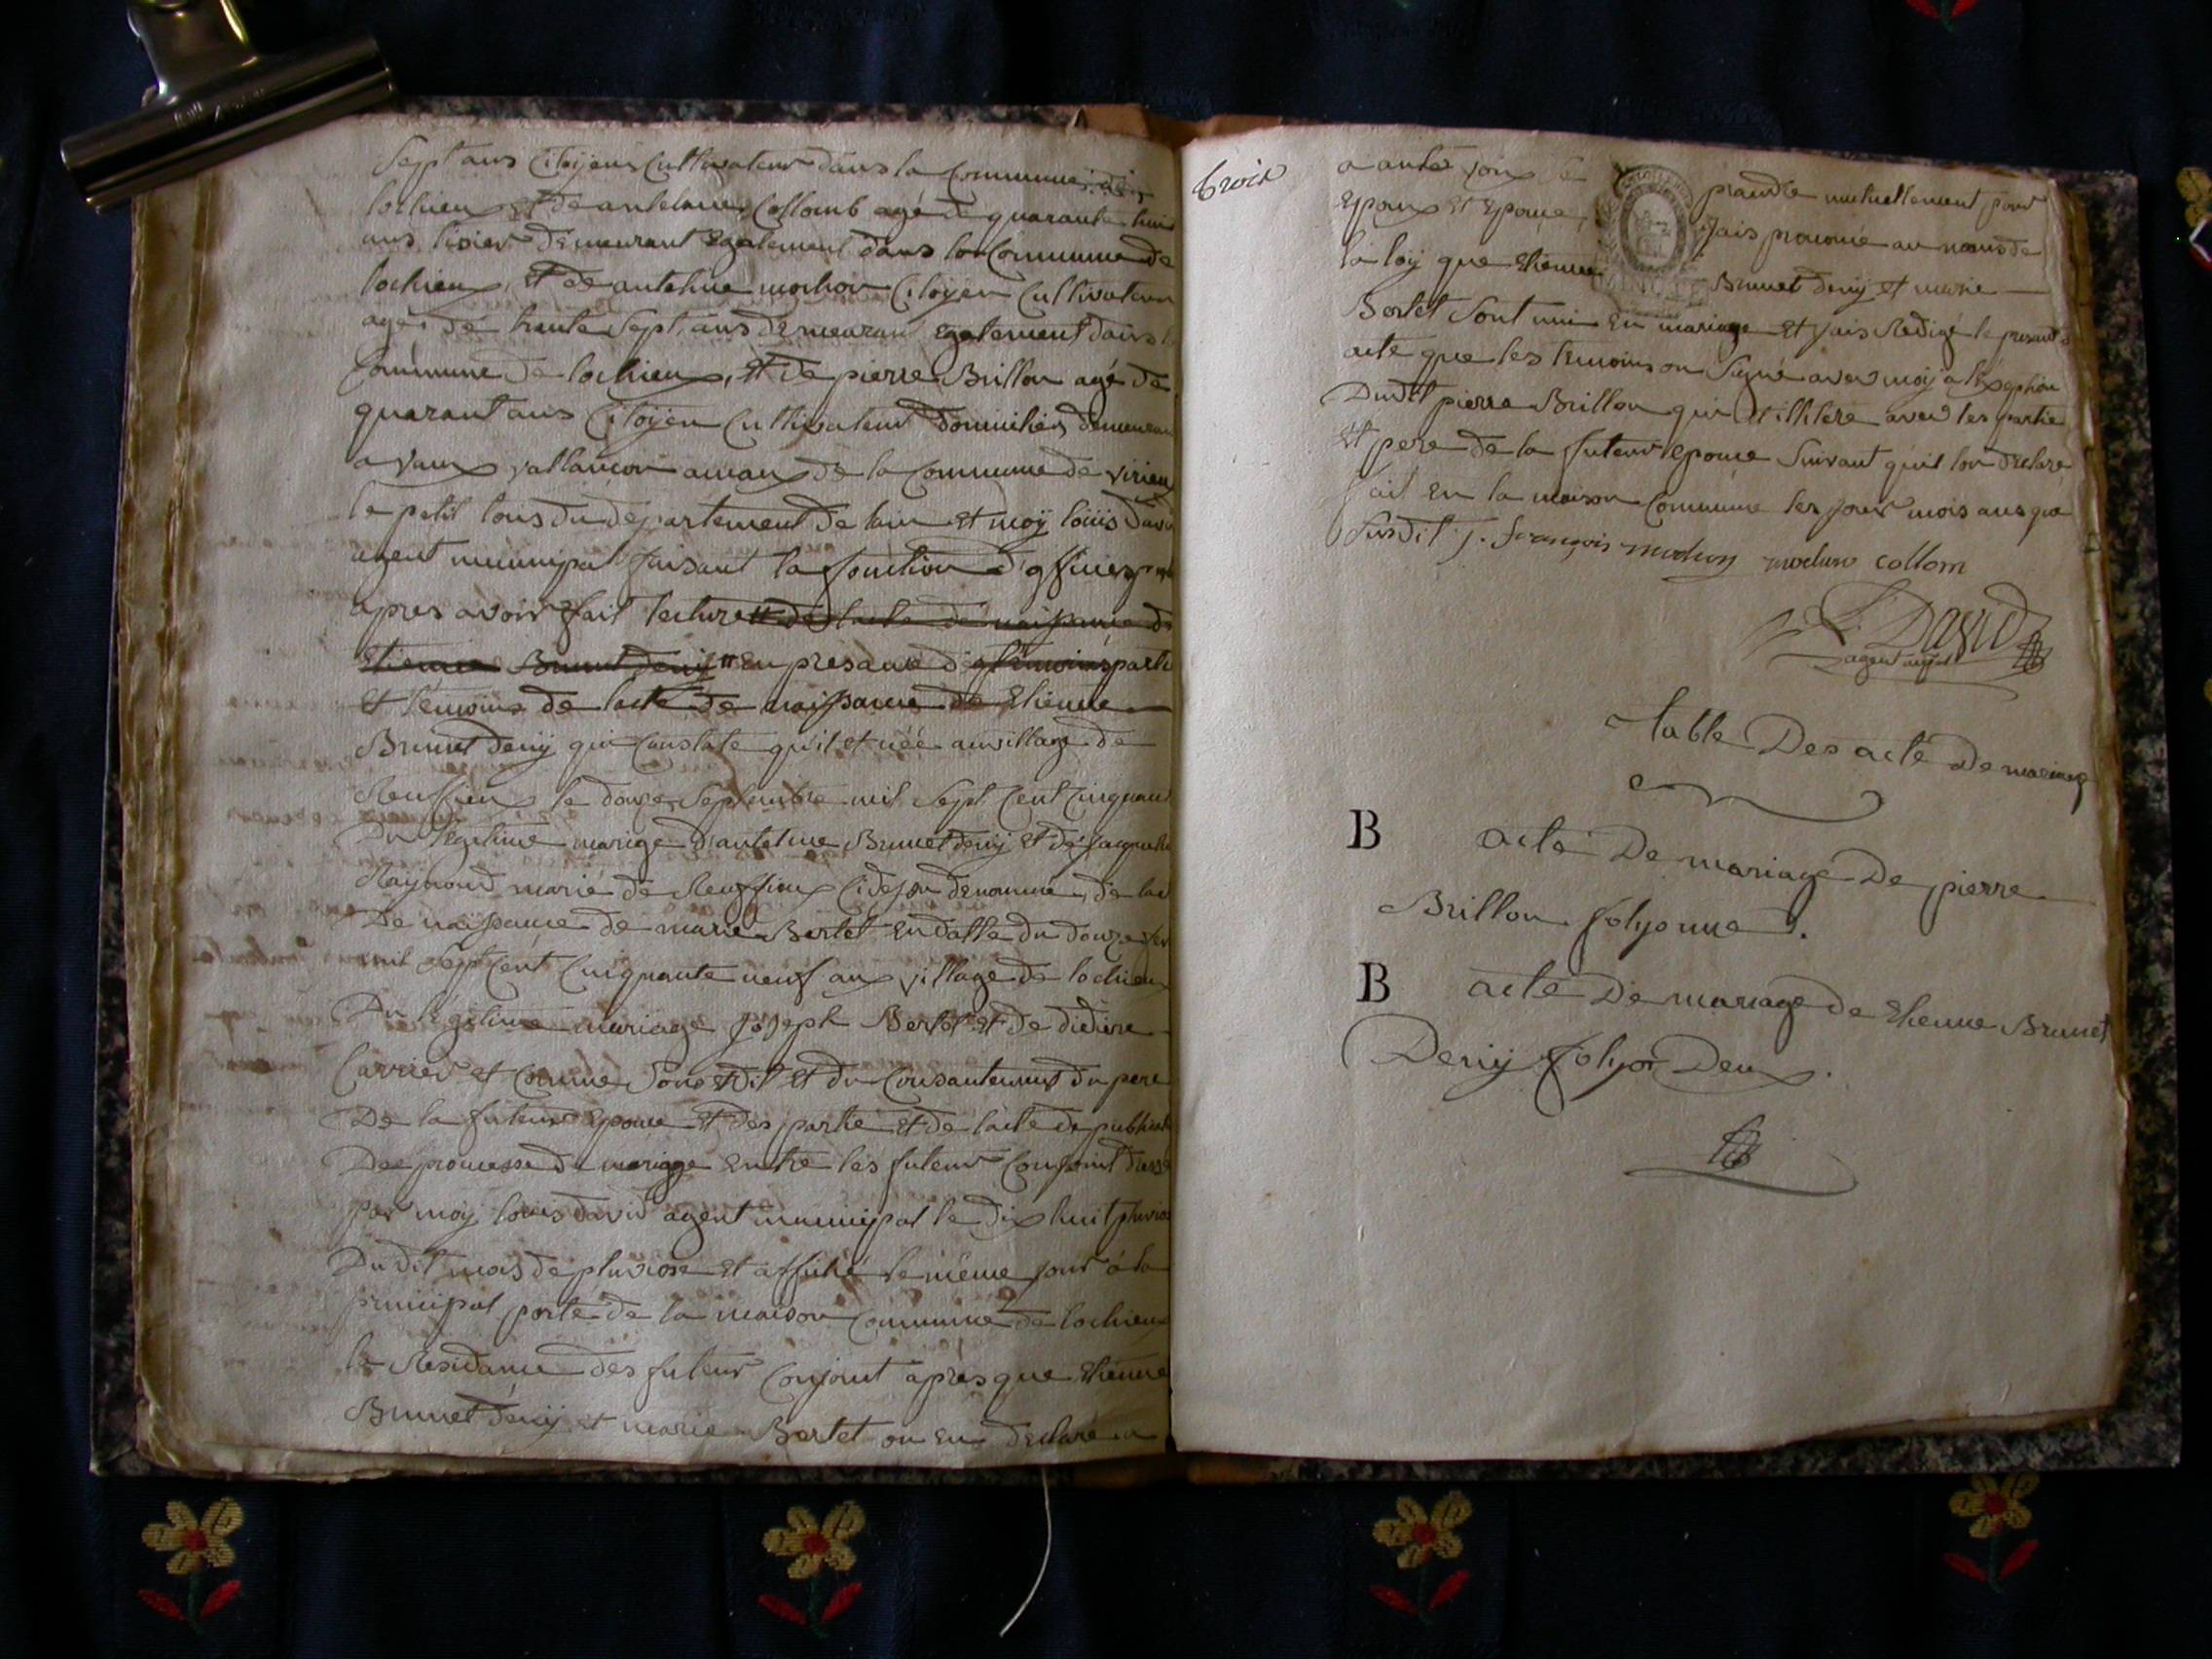 Sept ans Citoyens Cultivateur dans la Commune de
lochieu et de antelme Collomb agé de quarante huit
ans tixier demeurant egalement dans la Commune de
lochieu, et de antelme mochon Citoyen Cultivateur
agé de trente Sept ans demeurant egalement dans la
Commune de lochieu, et de pierre Brillon agé de
quarant ans Citoyen Cultivateur domicilier demeurant
a vaux de la Commune de virieu
le petit tous du departement de lain et moy loüis david
agent municipal faisant la fonction d'officier
apres avoir fait lecture de lacte de naissance de
Etienne Brunet deny en presance des partie
et temoins de lacte de naissance de Etienne
Brunet deny qui Constate qu'il et née au village de
Ruffieu le douze Septembre mil Sept Cent Cinquant
Du legitime marige d'antelme Brunet deny et de Jaqueline
Raymond marié de Ruffieu denommé, de lact
De naissance de marie Bertet en datte du douze
mil Sept Cent Cinquante neuf au village de lochieu
Du légitime mariage joseph Bertet et de
Carrier et Comme Sous et dit et du Consantement du pere
De la futeur epouce et des partie et de lacte de publicat
Des promesse de mariage entre les futeur Conjoint
par moy louis david agent municipal le dix huit pluviose
Du dit mois de pluviose et affiché le même jour à la
principal porte de la maison Commune de lochieu
la Residance des futeur Conjoint apres que Etienne
Brunet deny et marie Bertet on eu declaré a
Trois
a aute voix Se prandre mutuellement pour
Epoux et Epouce, Jais prononcé au noms de
la loy que Etienne Brunet deny et marie
Bertet Sont uni en mariage et Jais Redigé le present
acte que les temoins on Signé avec moy a lexeption
Dudit pierre Brillon qui et illitere avec les partie
et pere de la futeur epouce Suivant qu'il lon declaré
fait en la maison Commune les jour mois ans que
Susdit j. françois mochon mochon collom
L. David
agent mpal
table Des acte De mariage
B acte De mariage De pierre
Brillon folyo une.
B acte De mariage de Etienne Brunet
Deny folyo Deux.